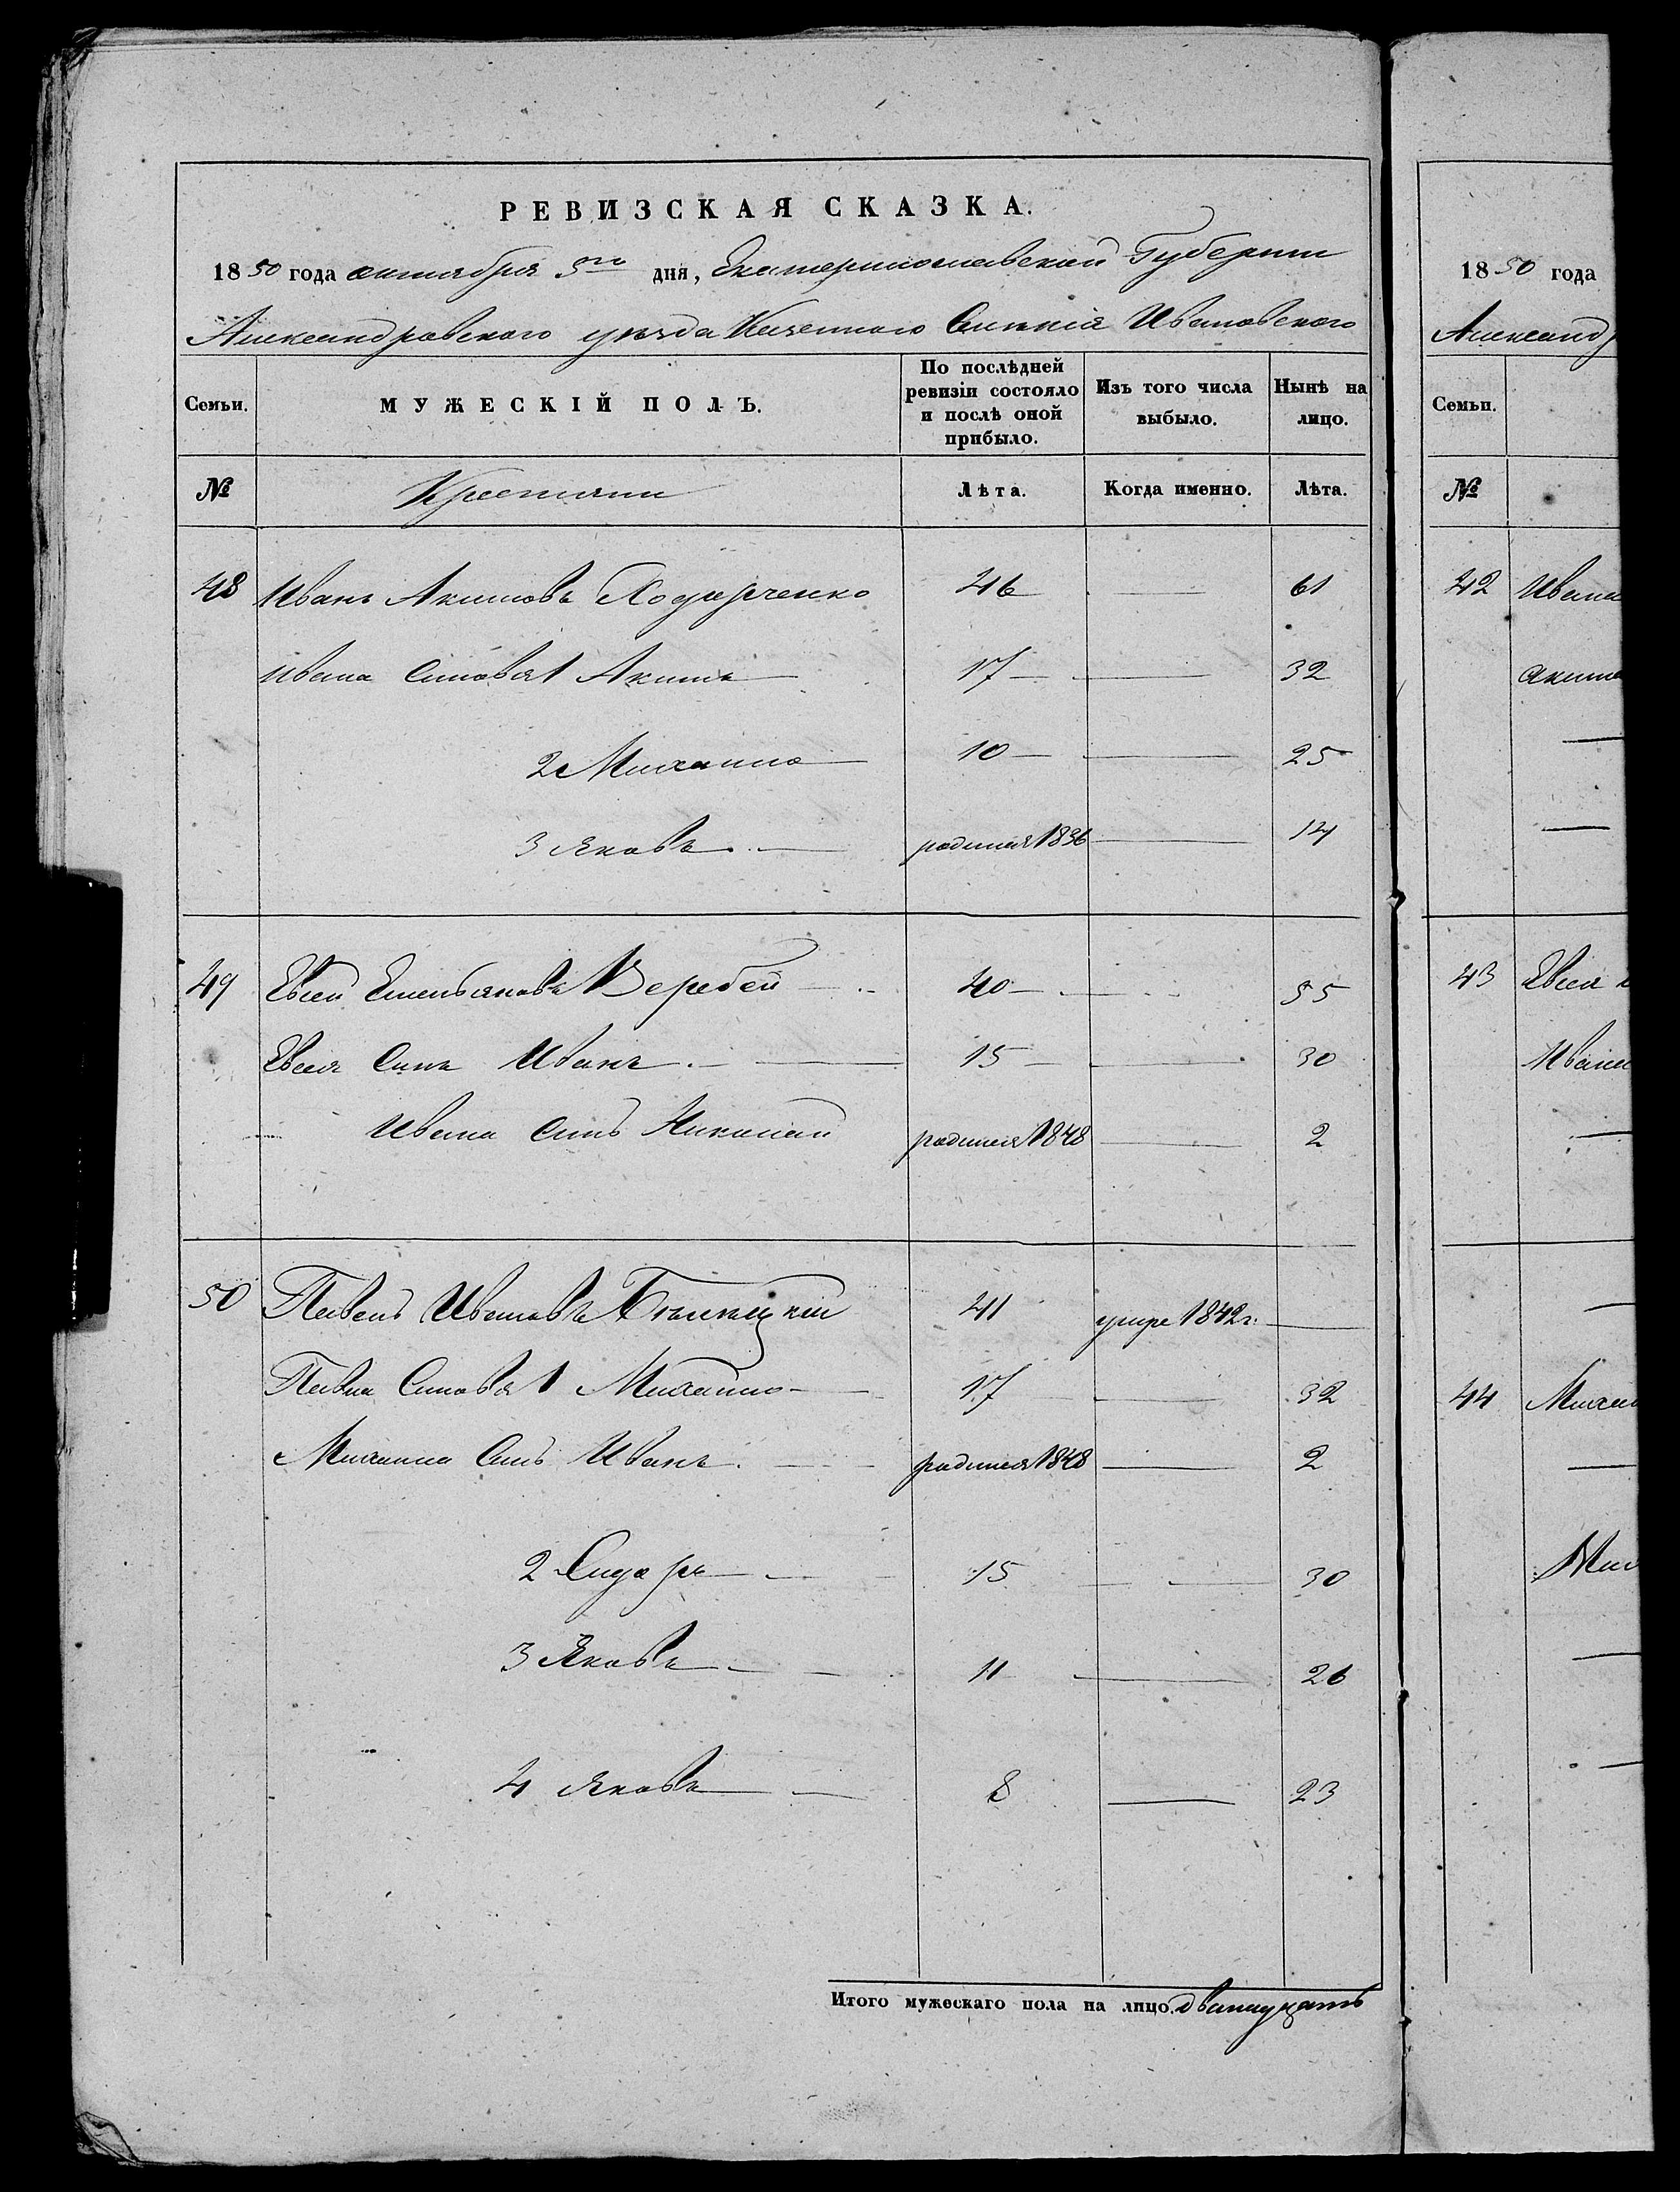 РЕВИЗСКАЯ СКАЗКА.
1850 года октября 5го дня, Екатеринославской Губернии
Александровского уезда Казенного Селения Ивановского
Семьи.
МУЖЕСКІЙ ПОЛЪ.
По послѣдней ревизіи состояло и послѣ оной прибыло.
Изъ того числа выбыло.
Нынѣ на лицо.
№ Крестяни Лѣта. Когда именно. Лѣта.
48 Иванъ Акимовъ 46 61
Ивана Синовя 1 Акимъ 17 32
2 Михаило 10 25
3 Яковъ родился 1836 14
49 Евсей Емельяновъ Веребей 40 55
Евсея Синъ Иванъ 15 30
Ивана Синъ Николай родился 1848 2
50 Павелъ Ивановъ 41 умре 1842г.
Павла Синовя 1 Михаило 17 32
Михаила Синъ Иванъ родился 1848 2
2 Сидоръ 15 30
3 Яковъ 11 26
4 Яковъ 8 23
Итого мужескаго пола на лицо. дванадцать
1850 года
Александ
Семьи.
№
42 Ивана
Акима
43 Евсея
Ивана
44 Михаи
Мих